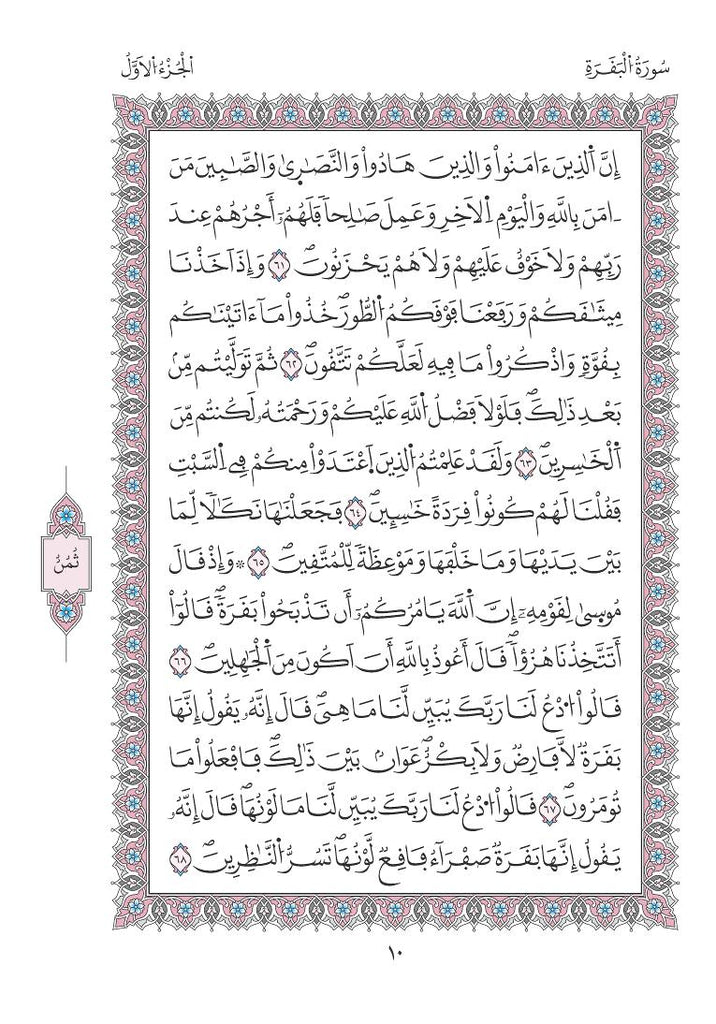 سُورَةُ الْبَقَرَةِ
الْجُزْءُ الْأَوَّلُ
إِنَّ اَ۬لذِينَ ءَامَنُواْ وَالذِينَ هَادُواْ وَالنَّصَٰرۭيٰ وَالصَّٰبِينَ مَنَ
ـ امَنَ بِاللَّهِ وَالْيَوْمِ اِ۬لَاخِرِ وَعَمِلَ صَٰلِحاٗ فَلَهُمُۥٓ أَجْرُهُمْ عِندَ
رَبِّهِمْ وَلَا خَوْفٌ عَلَيْهِمْ وَلَا هُمْ يَحْزَنُونَۖ ٦١ وَإِذَ اَخَذْنَا
مِيثَٰقَكُمْ وَرَفَعْنَا فَوْقَكُمُ اُ۬لطُّورَۖ خُذُواْ مَآ ءَاتَيْنَٰكُم
بِقُوَّةٖ وَاذْكُرُواْ مَا فِيهِ لَعَلَّكُمْ تَتَّقُونَۖ ٦٢ ثُمَّ تَوَلَّيْتُم مِّنۢ
بَعْدِ ذَٰلِكَۖ فَلَوْلَا فَضْلُ اُ۬للَّهِ عَلَيْكُمْ وَرَحْمَتُهُۥ لَكُنتُم مِّنَ
اَ۬لْخَٰسِرِينَۖ ٦٣ وَلَقَدْ عَلِمْتُمُ اُ۬لذِينَ اَ۪عْتَدَوْاْ مِنكُمْ فِے اِ۬لسَّبْتِ
فَقُلْنَا لَهُمْ كُونُواْ قِرَدَةً خَٰسِـِٕينَۖ ٦٤ فَجَعَلْنَٰهَا نَكَٰلاٗ لِّمَا
بَيْنَ يَدَيْهَا وَمَا خَلْفَهَا وَمَوْعِظَةٗ لِّلْمُتَّقِينَۖ ٦٥ * وَإِذْ قَالَ
مُوسۭيٰ لِقَوْمِهِۦٓ إِنَّ اَ۬للَّهَ يَامُرُكُمُۥٓ أَن تَذْبَحُواْ بَقَرَةٗۖ قَالُوٓاْ
أَتَتَّخِذُنَا هُزُؤاٗۖ قَالَ أَعُوذُ بِاللَّهِ أَنَ اَكُونَ مِنَ اَ۬لْجَٰهِلِينَۖ ٦٦
قَالُواْ اُ۟دْعُ لَنَا رَبَّكَ يُبَيِّن لَّنَا مَا هِيَۖ قَالَ إِنَّهُۥ يَقُولُ إِنَّهَا
بَقَرَةٞ لَّا فَارِضٞ وَلَا بِكْرٌۖ عَوَانُۢ بَيْنَ ذَٰلِكَۖ فَافْعَلُواْ مَا
تُومَرُونَۖ ٦٧ قَالُواْ اُ۟دْعُ لَنَا رَبَّكَ يُبَيِّن لَّنَا مَا لَوْنُهَاۖ قَالَ إِنَّهُۥ
يَقُولُ إِنَّهَا بَقَرَةٞ صَفْرَآءُ فَاقِعٞ لَّوْنُهَاۖ تَسُرُّ اُ۬لنَّٰظِرِينَۖ ٦٨
ثُمُنُ
١٠